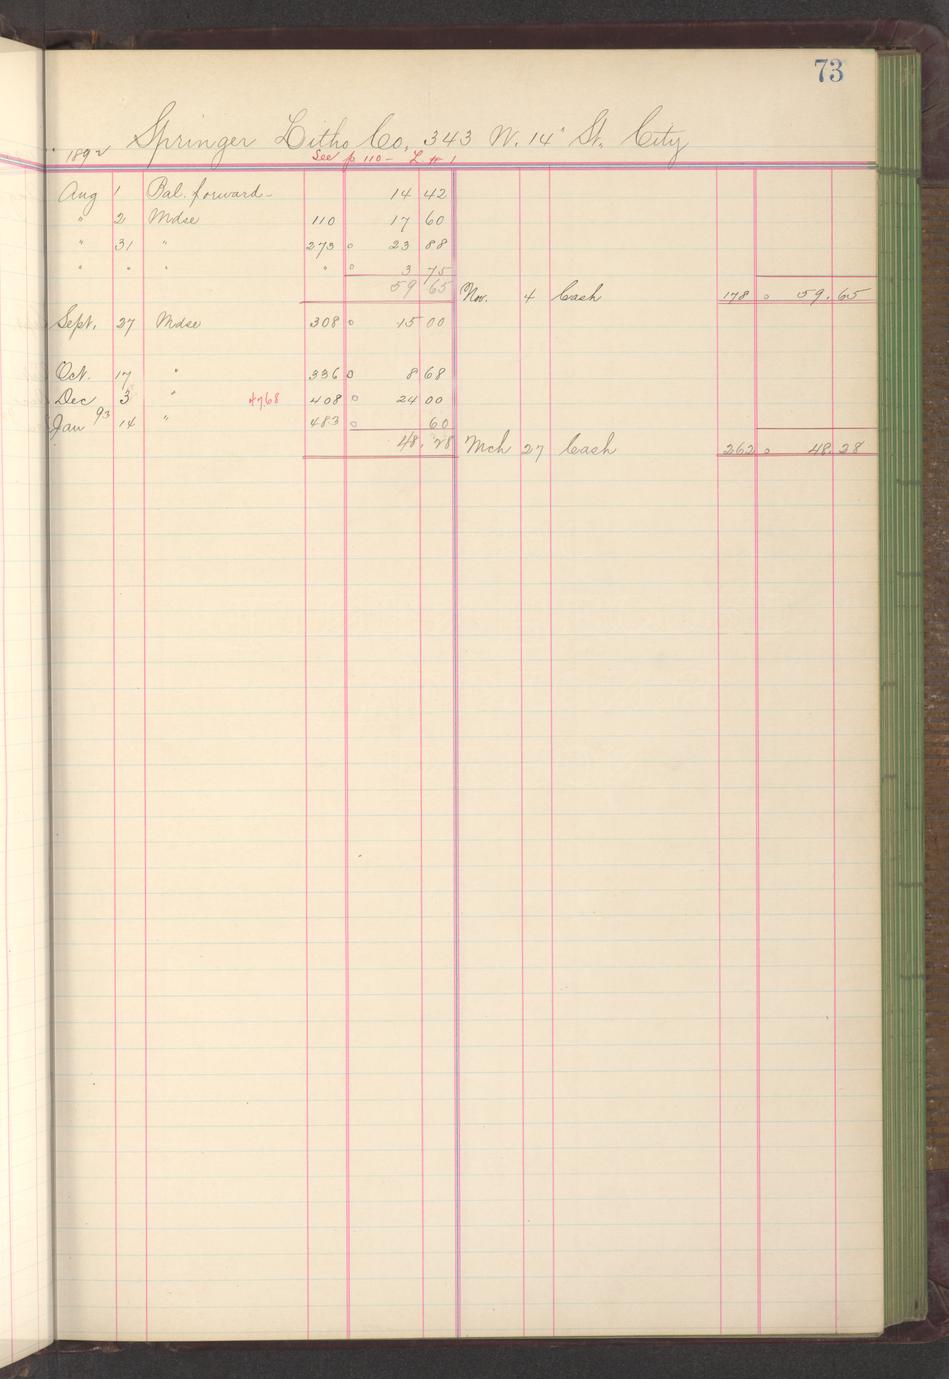 73
1892 Springer Litho Co, 343 W. 14" St. City
See p 110 - L # 1
Aug 1 Bal. forward - 14 42
" 2 Mdse 110 17 60
" 31 " 273 o 23 88
" " " " o 3 75
59 65 Nov. 4 Cash 178 o 59.65
Sept. 27 Mdse 308 o 15 00
Oct. 17 " 336 o 8 68
Dec 3 " 4768 408 o 24 00
Jan 93 14 " 483 o 60
48.28 Mch 27 Cash 262 o 48.28